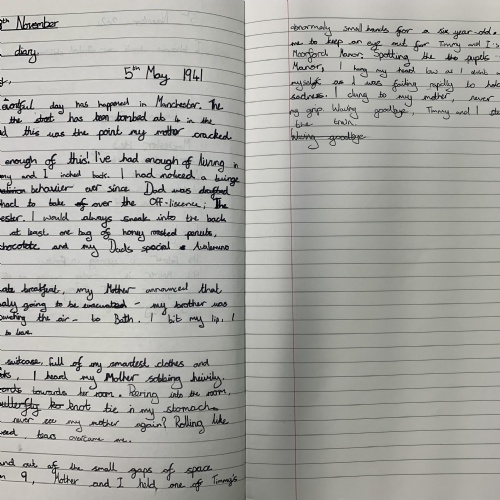 9th November
diary
5th May 1941
day has happened in Manchester. The
the street has been bombed at 6 in the
this was the point my mother cracked.
enough of this! I've had enough of living in
and I inched back. I had noticed a
behavior ever since Dad was drafted
had to take over the Off-liscence; The
I would always sneak into the back
at least one bag of honey roasted penuts,
chocolate and my Dads special
breakfast, my Mother announced that
going to be evacuated - my brother was
the air - to Bath. I bit my lip, I
to leave
suitcase, full of my smartest clothes and
I heard my Mother sobbing heivily.
towards her room. Peering into the room,
butterfly knot tie in my stomach
never see my mother again? Rolling like
tears overcame me.
and out of the small gaps of space
9, Mother and I held, one of Timmy's
abnormaly small hands for a six year-old.
me to keep an eye out for Timmy and I's
Moorford Manor. Spotting the two pupils
Manor, I hung my head low as I
myself as I was failing rapidly to hold
sadness. I clung to my mother, never
my grip. Waving goodbye, Timmy and I
the train.
Waving goodbye